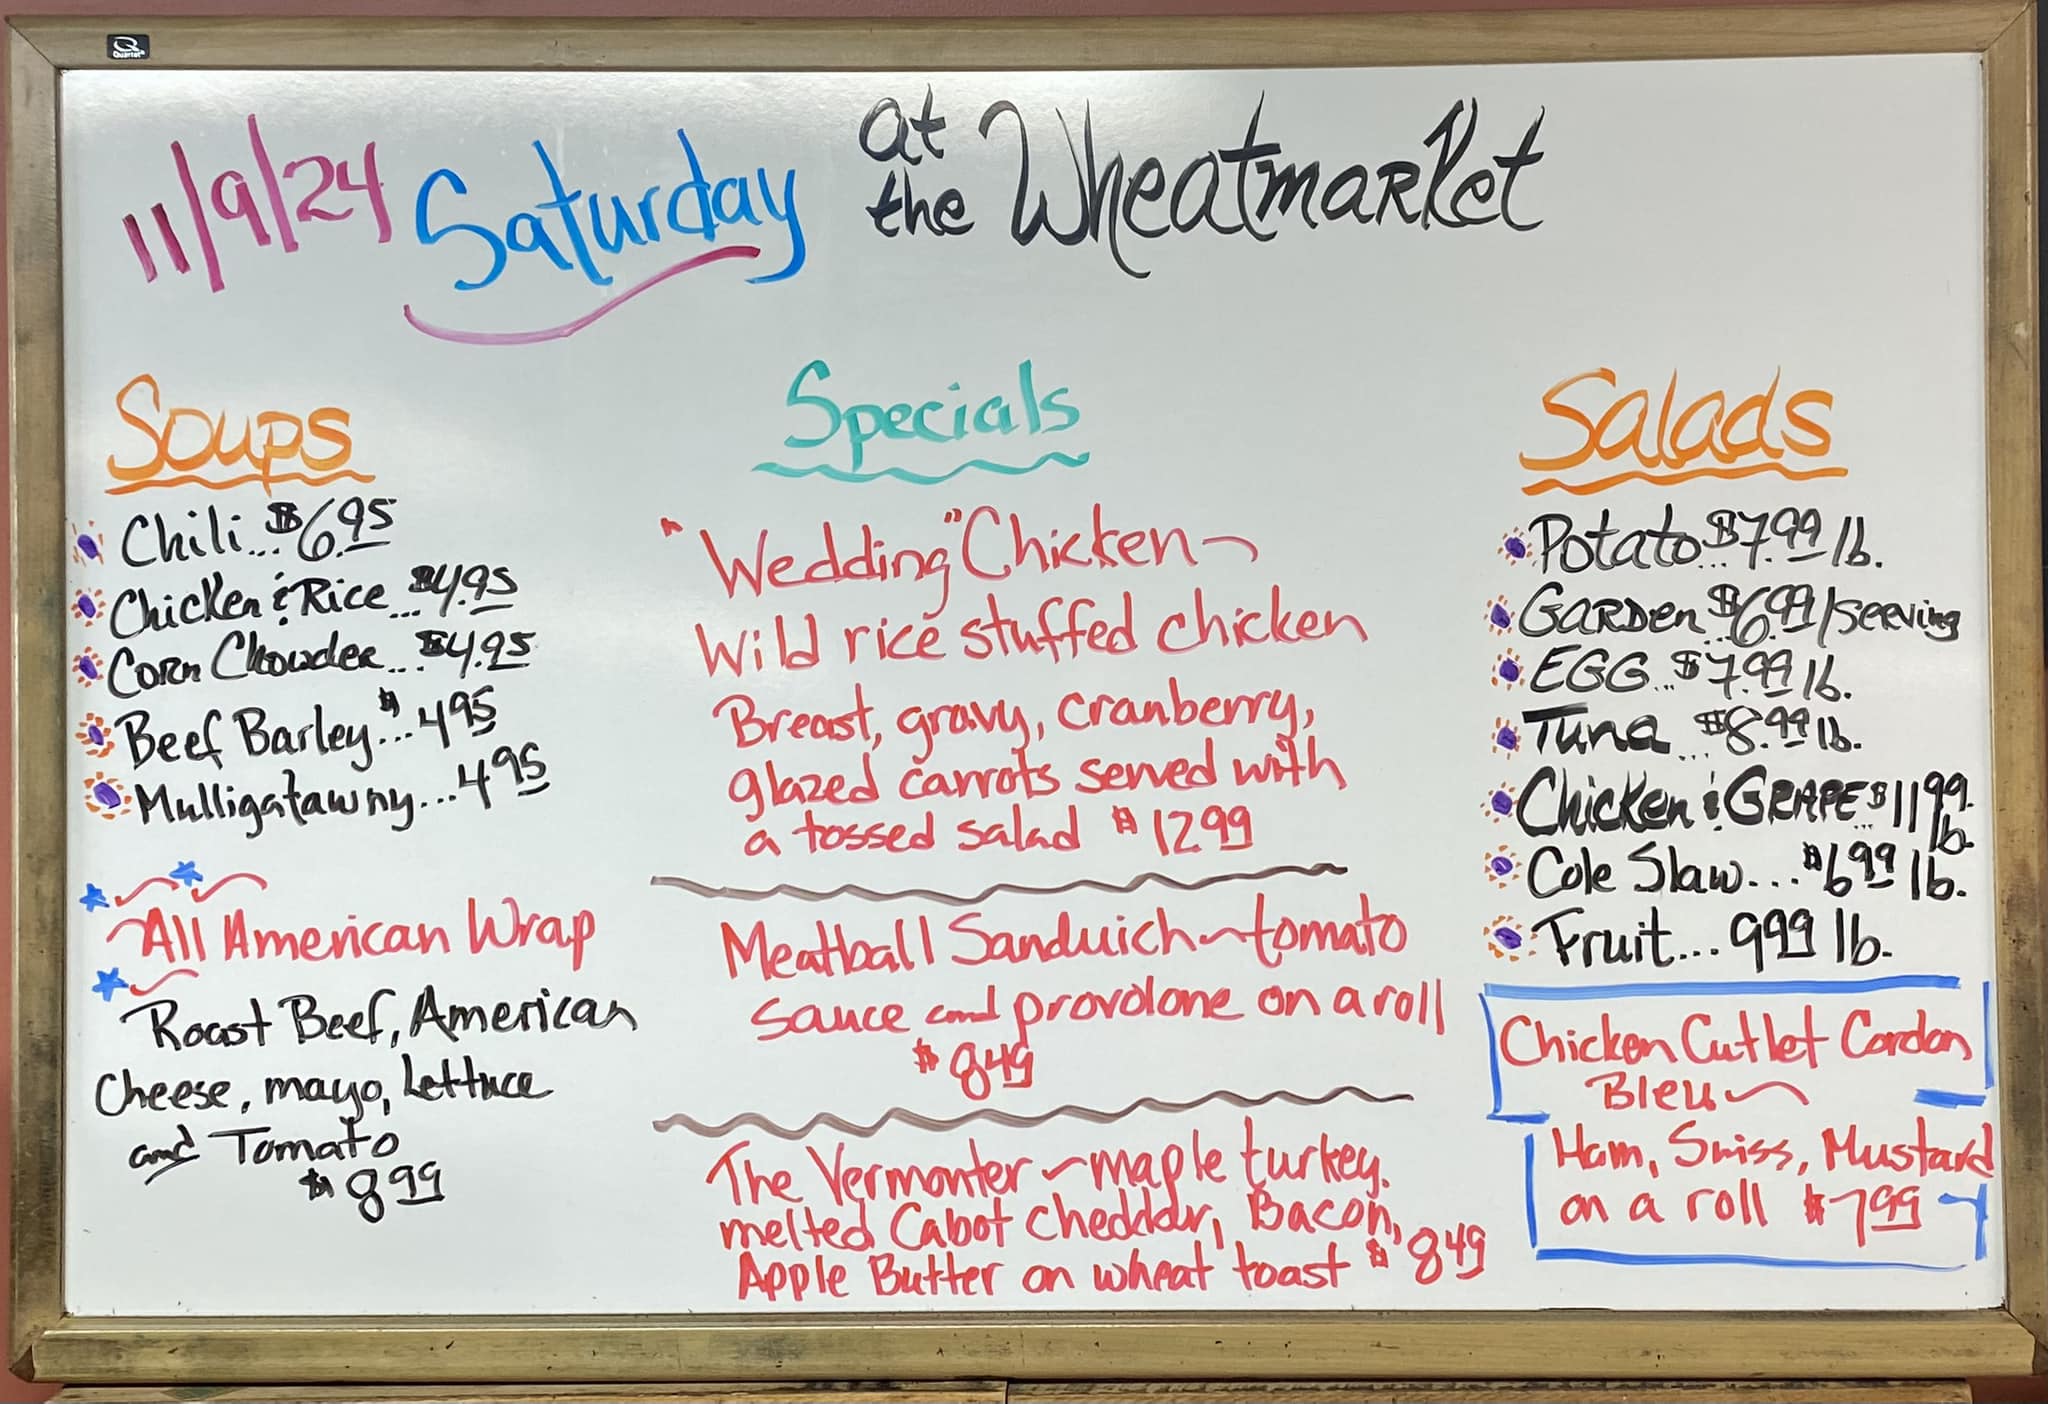 Quartet
11/9/24 Saturday at the Wheatmarket
Soups
Chili... $6.95
Chicken & Rice... $4.95
Corn Chowder... $4.95
Beef Barley... $4.95
Mulligatawny... 4.95
All American Wrap
Roast Beef, American
Cheese, mayo, Lettuce
and Tomato
$8.99
Specials
"Wedding" Chicken ~
Wild rice stuffed chicken
Breast, gravy, cranberry,
glazed carrots served with
a tossed salad $12.99
Meatball Sandwich ~ tomato
sauce and provolone on a roll
$8.49
The Vermonter ~ maple turkey.
melted Cabot cheddar, Bacon,
Apple Butter on wheat toast $8.49
Salads
Potato... $7.99 lb.
Garden... $6.99/serving
EGG... $7.99 lb.
Tuna... $8.99 lb.
Chicken & GRAPE... $11.99
lb.
Cole Slaw... $6.99 lb.
Fruit... 9.99 lb.
Chicken Cutlet Cordon
Bleu ~
Ham, Swiss, Mustard
on a roll $7.99